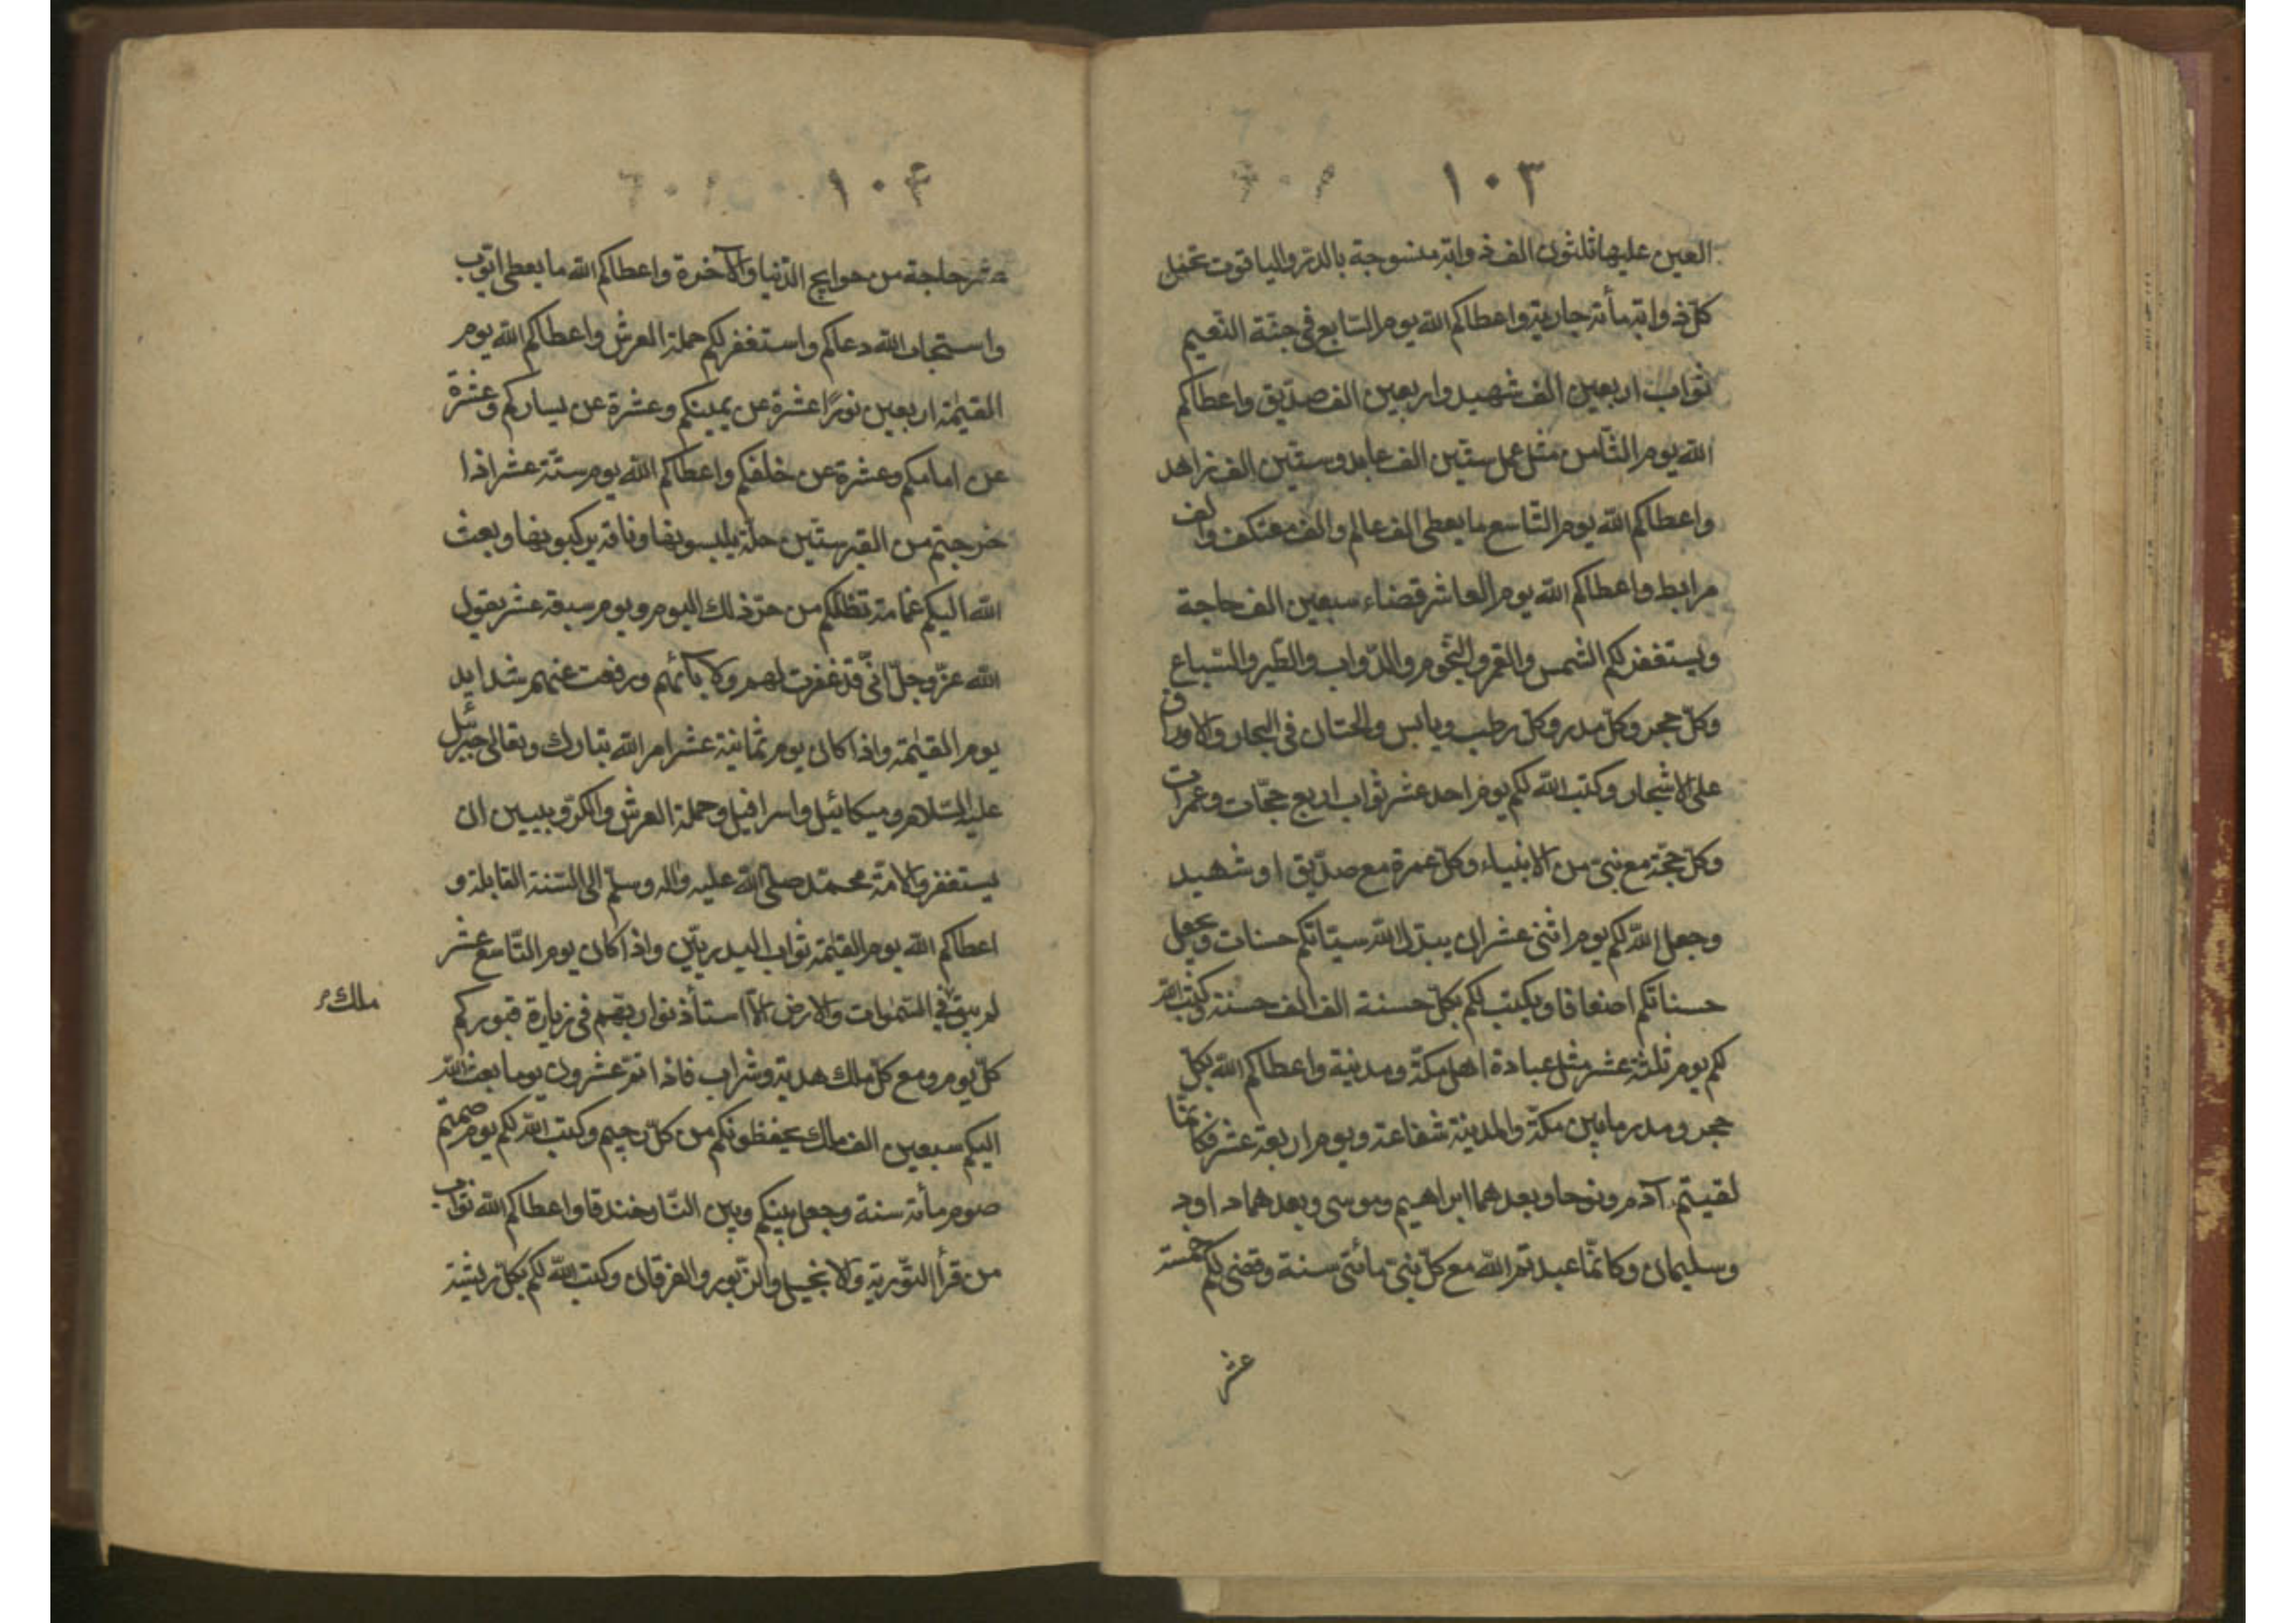 ١٠٣
العين عليها ثلثون الف ذوابة منسوجة بالدر والياقوت تحمل
كل ذوابة مأة جارية واعطاكم الله يوم السابع في جنة النعيم
ثواب اربعين الف شهيد واربعين الف صديق واعطاكم
الله يوم الثامن مثل عمل ستين الف عابد وستين الف زاهد
واعطاكم الله يوم التاسع ما يعطى الف عالم والف معتكف والف
مرابط واعطاكم الله يوم العاشر قضاء سبعين الف حاجة
ويستغفر لكم الشمس والقمر والنجوم والدواب والطير والسباع
وكل حجر وكل مدر وكل رطب ويابس والحتان في البحار والاوراق
على الاشجار وكتب الله لكم يوم احد عشر ثواب اربع حجات وعمرات
وكل حجة مع نبي من الانبياء وكل عمرة مع صديق او شهيد
وجعل الله لكم يوم اثنى عشر ان يبدل الله سيئاتكم حسنات ويجعل
حسناتكم اضعافا ويكتب لكم بكل حسنة الف الف حسنة وكتب الله
لكم يوم ثلثة عشر مثل عبادة اهل مكة ومدنية واعطاكم الله بكل
حجر ومدر ما بين مكة والمدينة شفاعة ويوم اربعة عشر فكانما
لقيتم آدم ونوحا وبعدهما ابراهيم وموسى وبعدهما داود
وسليمان وكانما عبدتم الله مع كل نبي مأتي سنة وقضى لكم خمسة
عشر
١٠٤
عشر حاجة من حوايج الدنيا والآخرة واعطاكم الله ما يعطى ايوب
واستجاب الله دعاكم واستغفر لكم حملة العرش واعطاكم الله يوم
القيمة اربعين نورًا عشرة عن يمينكم وعشرة عن يساركم وعشرة
عن امامكم وعشرة عن خلفكم واعطاكم الله يوم ستة عشر اذا
خرجتم من القبر ستين حلة يلبسونها وناقة يركبونها وبعث
الله اليكم غمامة تظلكم من حر ذلك اليوم ويوم سبعة عشر يقول
الله عز وجل اني قد غفرت لهم ولابائهم ورفعت عنهم شدايد
يوم القيمة واذا كان يوم ثمانية عشر امر الله تبارك وتعالى جبرئيل
عليه السلام وميكائيل واسرافيل وحملة العرش والكروبيين ان
يستغفروا لامة محمد صلى الله عليه واله وسلم الى السنة القابلة و
اعطاكم الله يوم القيمة ثواب البدريين واذا كان يوم التاسع عشر
لم يبق في السموات والارض الا استأذنوا ربهم في زيارة قبوركم
ملك
كل يوم ومع كل ملك هدية وشراب فاذا تم عشرون يوما بعث الله
اليكم سبعين الف ملك يحفظونكم من كل رجيم وكتب الله لكم يوم صمتم
صوم مأة سنة وجعل بينكم وبين النار خندقا واعطاكم الله ثواب
من قرأ التورية والانجيل والزبور والفرقان وكتب الله لكم بكل ريشة